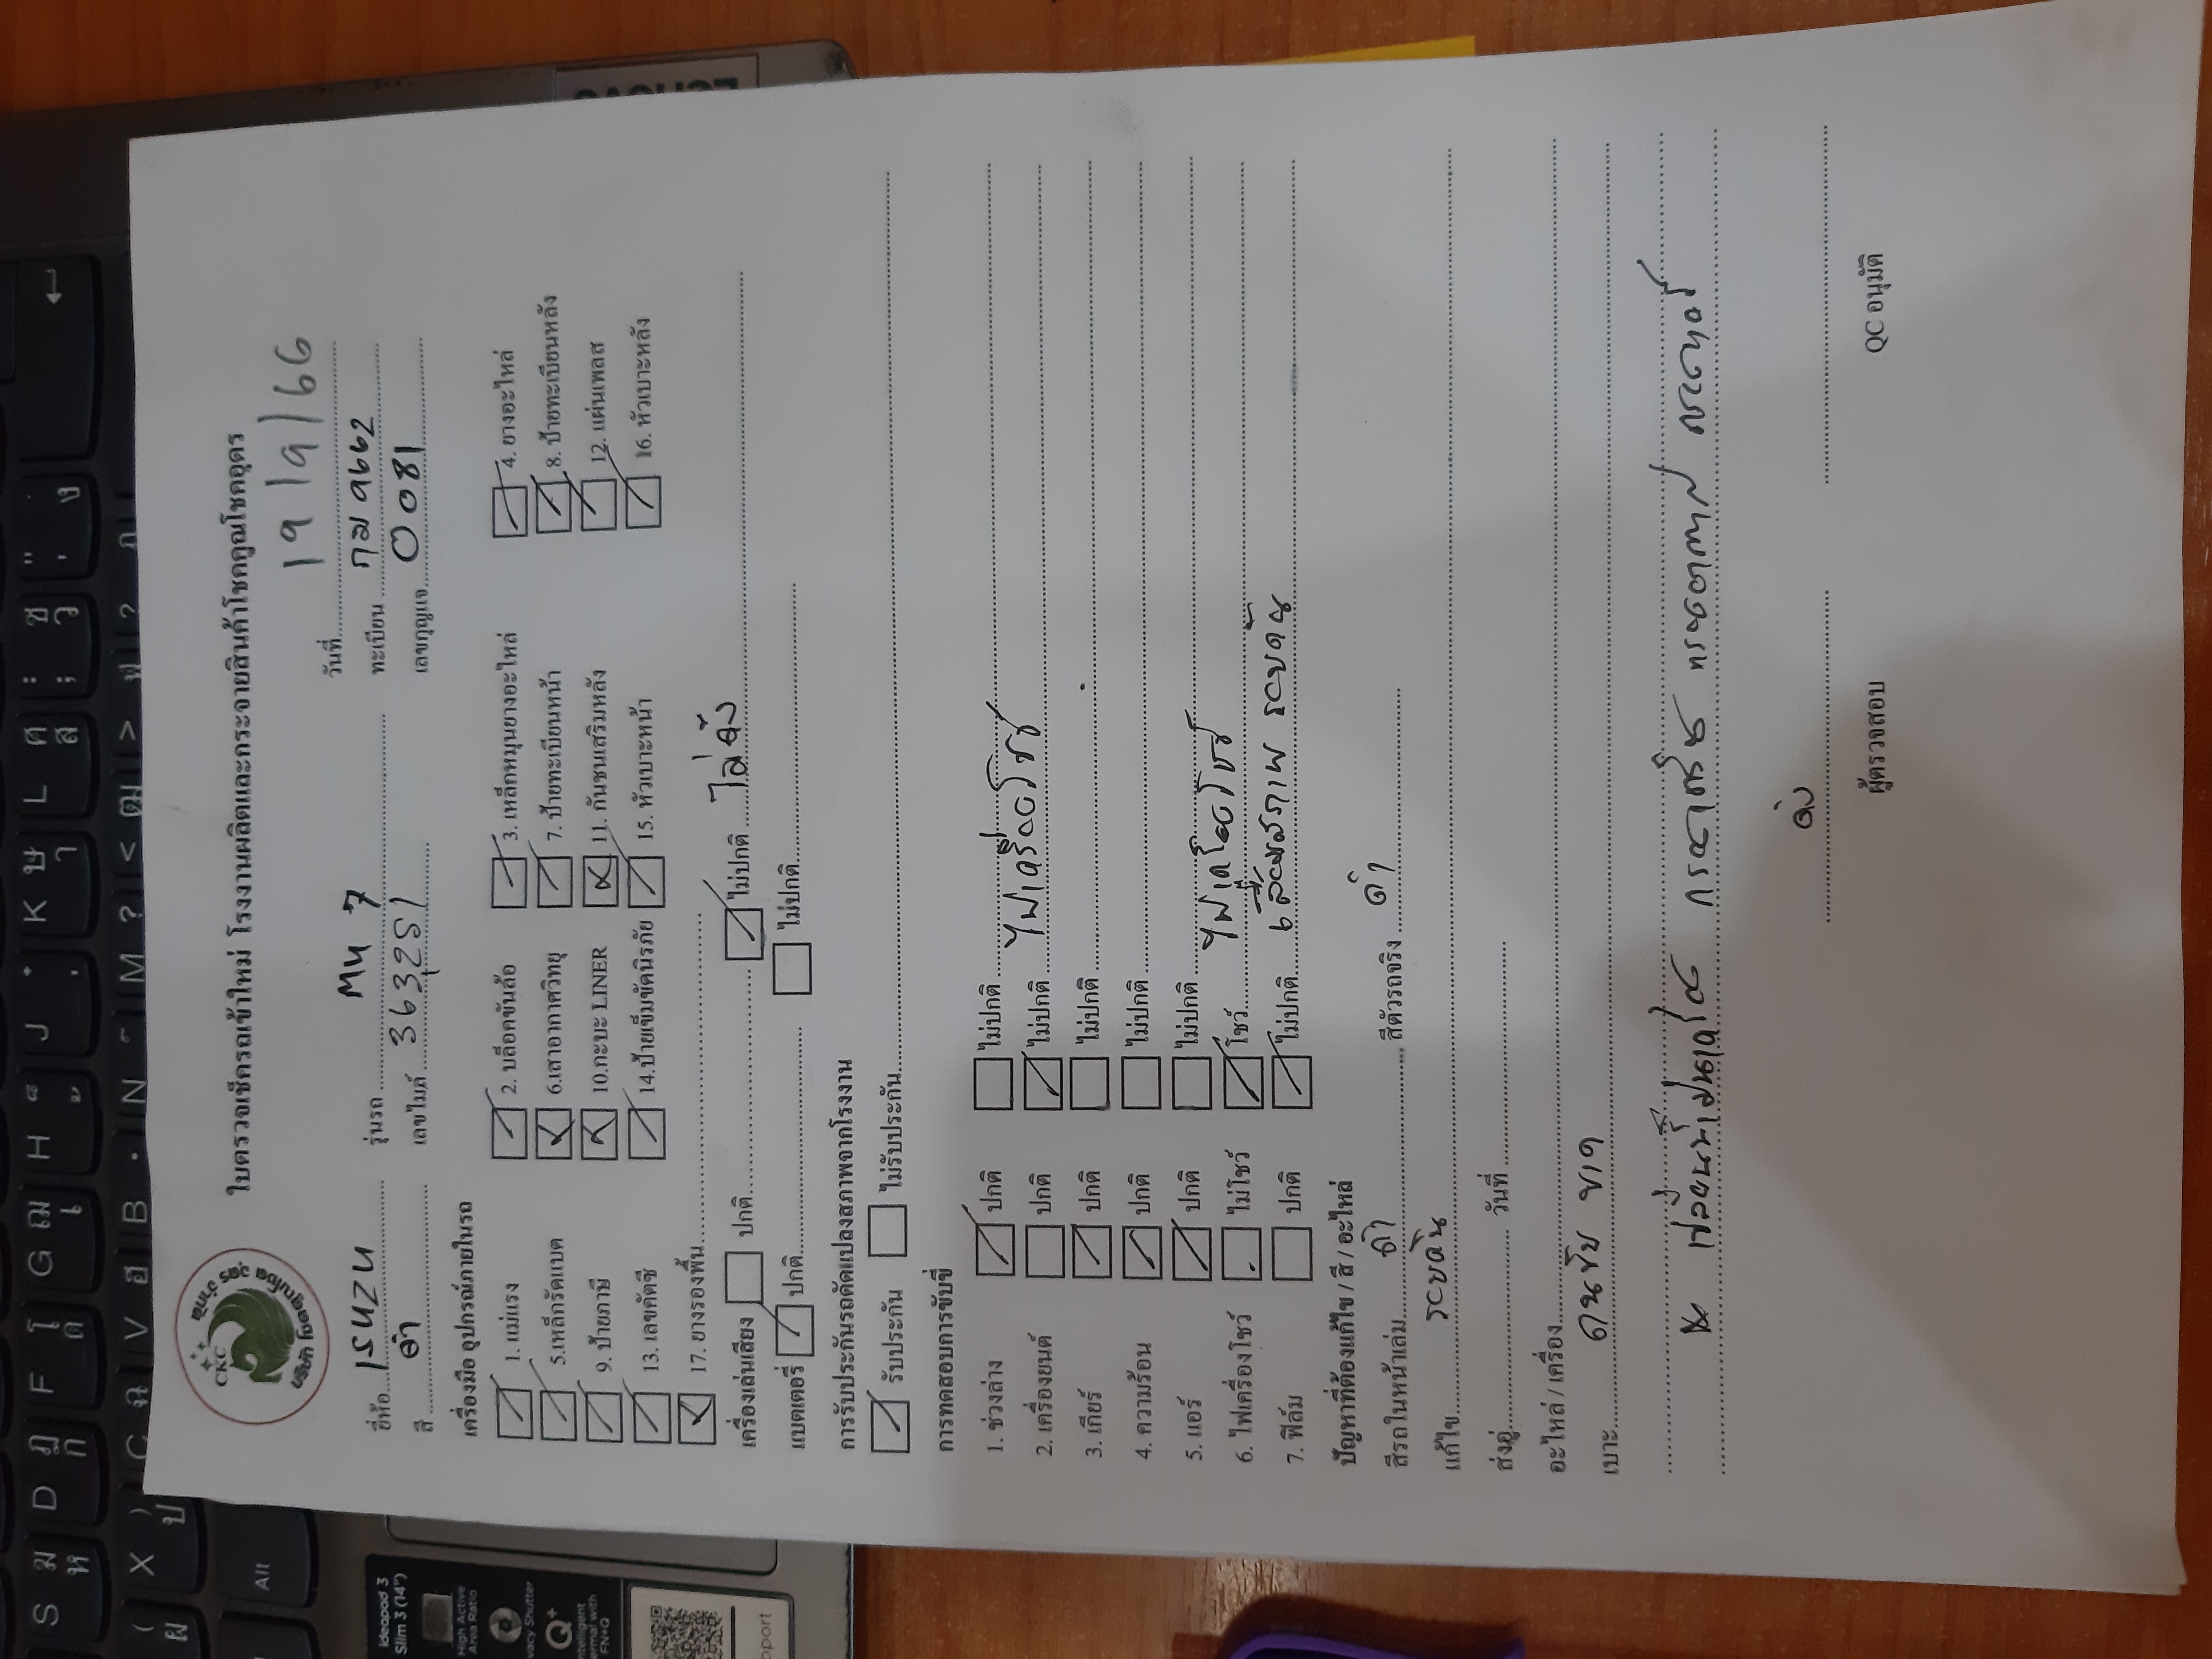 CKC
บริษัท โชคคูณโชค อุดร จำกัด
ใบตรวจเช็ครถเข้าใหม่ โรงงานผลิตและกระจายสินค้าโชคคูณโชคอุดร
วันที่ 19/9/66
ยี่ห้อ ISUZU รุ่นรถ MU 7 ทะเบียน กม 9662
สี ดำ เลขไมล์ 363,251 เลขกุญแจ 0081
เครื่องมือ อุปกรณ์ภายในรถ
1. แม่แรง 2. บล็อคขันล้อ 3. เหล็กหมุนยางอะไหล่ 4. ยางอะไหล่
5.เหล็กรัดแบต 6.เสาอากาศวิทยุ 7. ป้ายทะเบียนหน้า 8. ป้ายทะเบียนหลัง
9. ป้ายภาษี 10.กะบะ LINER 11. กันชนเสริมหลัง 12. แผ่นเพลส
13. เลขคัตซี 14.ป้ายเข็มขัดนิรภัย 15. หัวเบาะหน้า 16. หัวเบาะหลัง
17. ยางรองพื้น
เครื่องเล่นเสียง ปกติ ไม่ปกติ ไม่ดัง
แบตเตอรี่ ปกติ ไม่ปกติ
การรับประกันรถดัดแปลงสภาพจากโรงงาน
รับประกัน ไม่รับประกัน
การทดสอบการขับขี่
1. ช่วงล่าง ปกติ ไม่ปกติ
2. เครื่องยนต์ ปกติ ไม่ปกติ ไฟเครื่องโชว์
3. เกียร์ ปกติ ไม่ปกติ
4. ความร้อน ปกติ ไม่ปกติ
5. แอร์ ปกติ ไม่ปกติ
6. ไฟเครื่องโชว์ ไม่โชว์ โชว์ ไฟเครื่องโชว์
7. ฟิล์ม ปกติ ไม่ปกติ เสื่อมสภาพ รอบคัน
ปัญหาที่ต้องแก้ไข / สี / อะไหล่
สีรถในหน้าเล่ม ดำ สีตัวรถจริง ดำ
แก้ไข รอบคัน
ส่งอู่ วันที่
อะไหล่ / เครื่อง
เบาะ คนขับ ขาด
ดัง
ผู้ตรวจสอบ QC อนุมัติ
S D F G H J K L
X C V B N M
Alt
Ideapad 3
Slim 3 (14")
High Active
Area Ratio
Q+
FN+Q